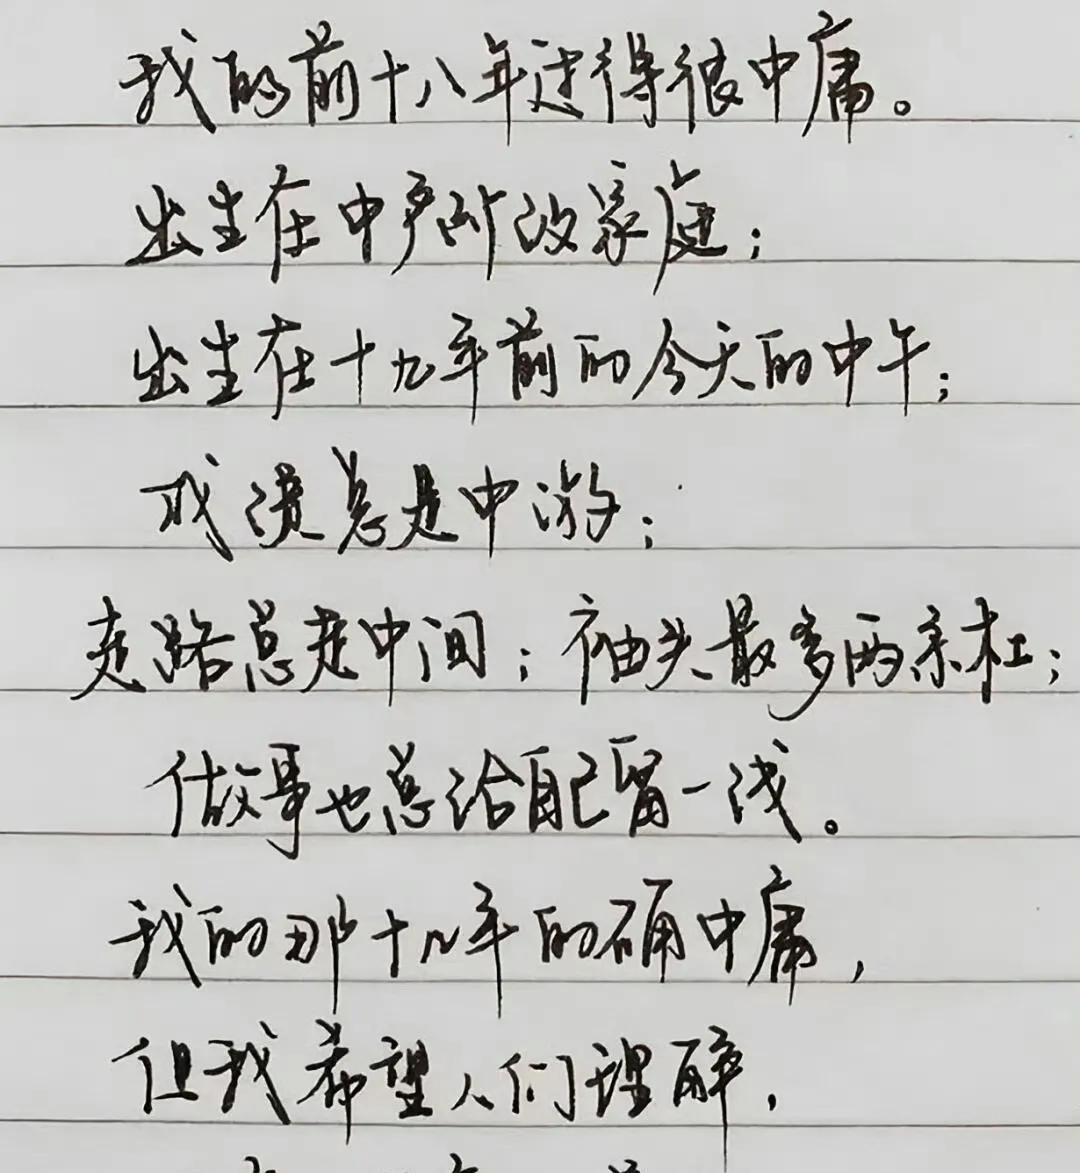 我的前十八年过得很中庸。
出生在中产阶级家庭；
出生在十九年前的今天的中午；
成绩总是中游；
走路总走中间；袖头最多两条杠；
做事也总给自己留一线。
我的那十九年的确中庸，
但我希望人们理解，